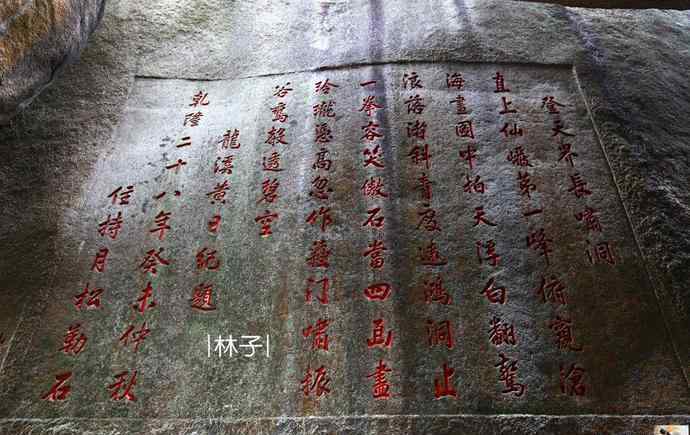 登天界長嘯洞
直上仙巖第一峰俯窺滄
海畫圖中拍天浮白翻驚
浪落渚斜青及遠鴻洞止
一拳容笑傲石當四面盡
玲瓏憑高忽作蘇門嘯振
谷鸞殸透碧空
龍溪黃日紀題
乾隆二十八年癸未仲秋
住持月松勒石
|林子|